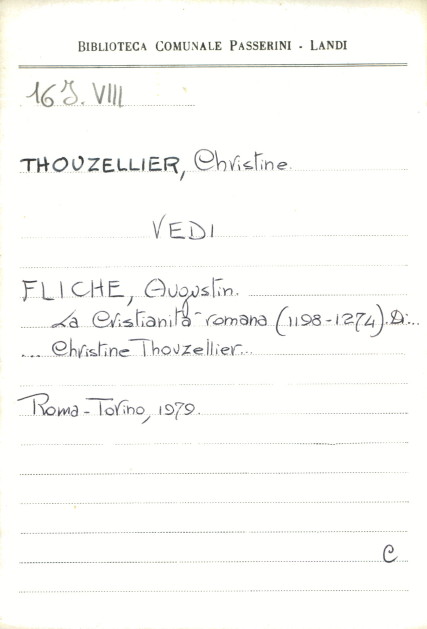 BIBLIOTECA COMUNALE PASSERINI - LANDI
16 J. VIII
THOUZELLIER, Christine.
VEDI
FLICHE, Augustin.
La Cristianità romana (1198-1274). Di...
... Christine Thouzellier...
Roma - Torino, 1979.
C